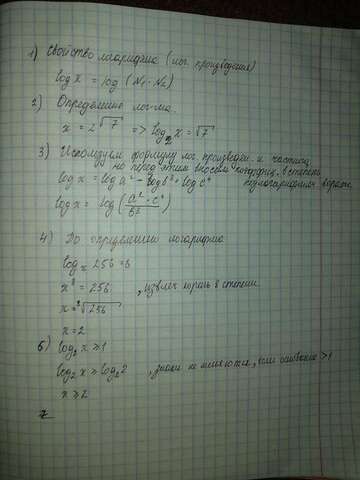 1) Свойство логарифма (лог. произведения)
log x = log (N₁·N₂)
2) Определение лог-ма
x = 2^√7 => log₂ x = √7
3) Используем формулу лог. произведен. и частн
но перед этим вносим коэффиц. в степень
log x = log a² - log b³ + log c⁴ подлогарифмен. выраж.
log x = log (a²·c⁴ / b³)
4) По определению логарифма
logₓ 256 = 8
x⁸ = 256 , извлеч корень 8 степени
x = ⁸√256
x = 2
5) log₂ x ≥ 1
log₂ x ≥ log₂ 2 , знаки не меняются, если основание > 1
x ≥ 2